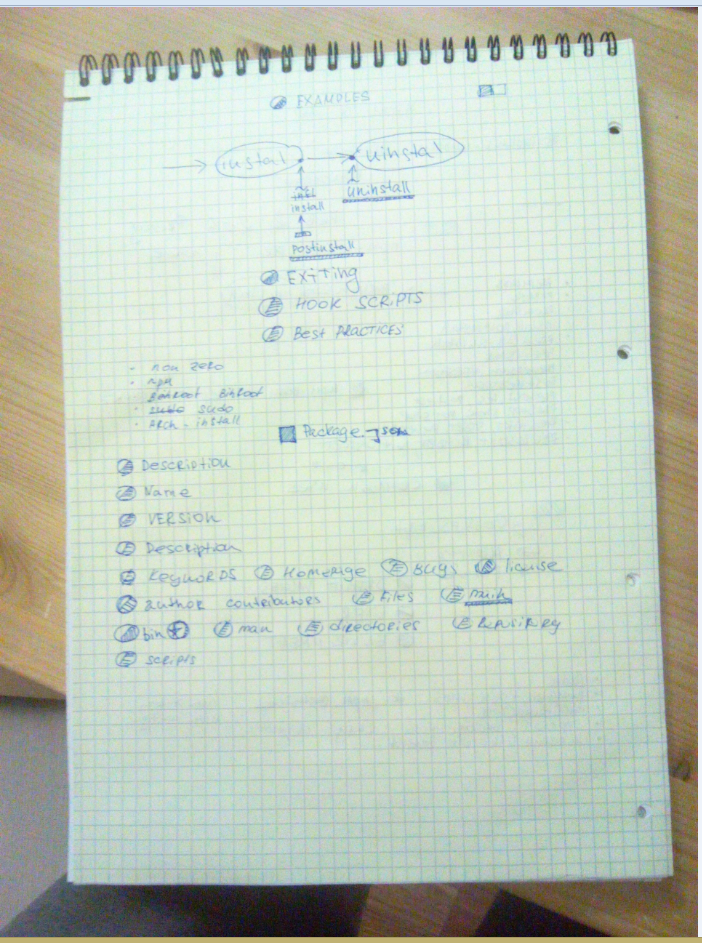 EXAMPLES
instal uinstal
install uninstall
postinstall
EXiTing
HOOK SCRiPTS
Best PRACTiCES
· non zero
· npm
BinRoot
· sudo sudo
· ARCh - install
Package.json
Description
Name
VERSION
Description
KeywoRDS Homepage Bugs license
author contributors Files main
bin man directories Repository
scripts